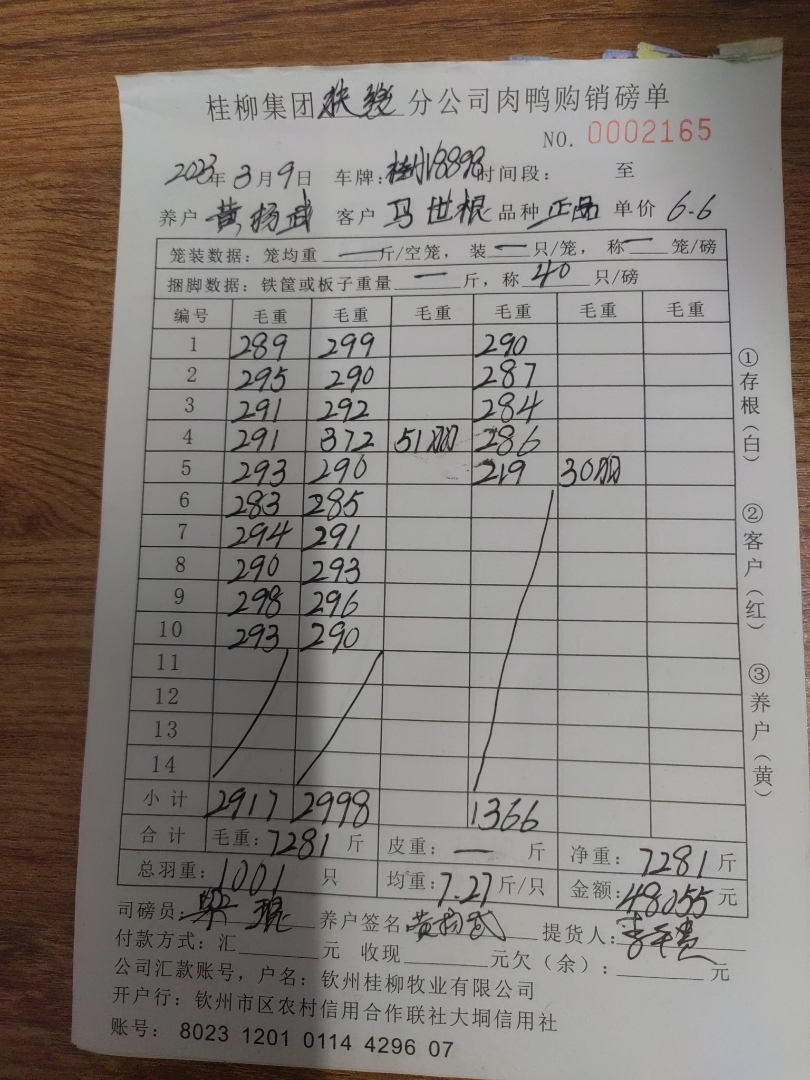 桂柳集团扶绥分公司肉鸭购销磅单
NO. 0002165
2023年3月9日 车牌: 时间段: 至
养户 黄杨武 客户 马世根 品种 正品 单价 6.6
笼装数据：笼均重 — 斤/空笼，装 — 只/笼，称 — 笼/磅
捆脚数据：铁筐或板子重量 — 斤，称 40 只/磅
编号 毛重 毛重 毛重 毛重 毛重 毛重
1 289 299 290
2 295 290 287
3 291 292 284
4 291 372 51羽 286
5 293 290 219 30羽
6 283 285
7 294 291
8 290 293
9 298 296
10 293 290
11
12
13
14
小计 2917 2998 1366
合计 毛重: 7281 斤 皮重: — 斤 净重: 7281 斤
总羽重: 1001 只 均重: 7.27 斤/只 金额: 48055 元
司磅员: 梁琨 养户签名 黄杨武 提货人:
付款方式：汇 元 收现 元欠（余）: 元
公司汇款账号，户名：钦州桂柳牧业有限公司
开户行：钦州市区农村信用合作联社大垌信用社
账号: 8023 1201 0114 4296 07
①存根（白）
②客户（红）
③养户（黄）